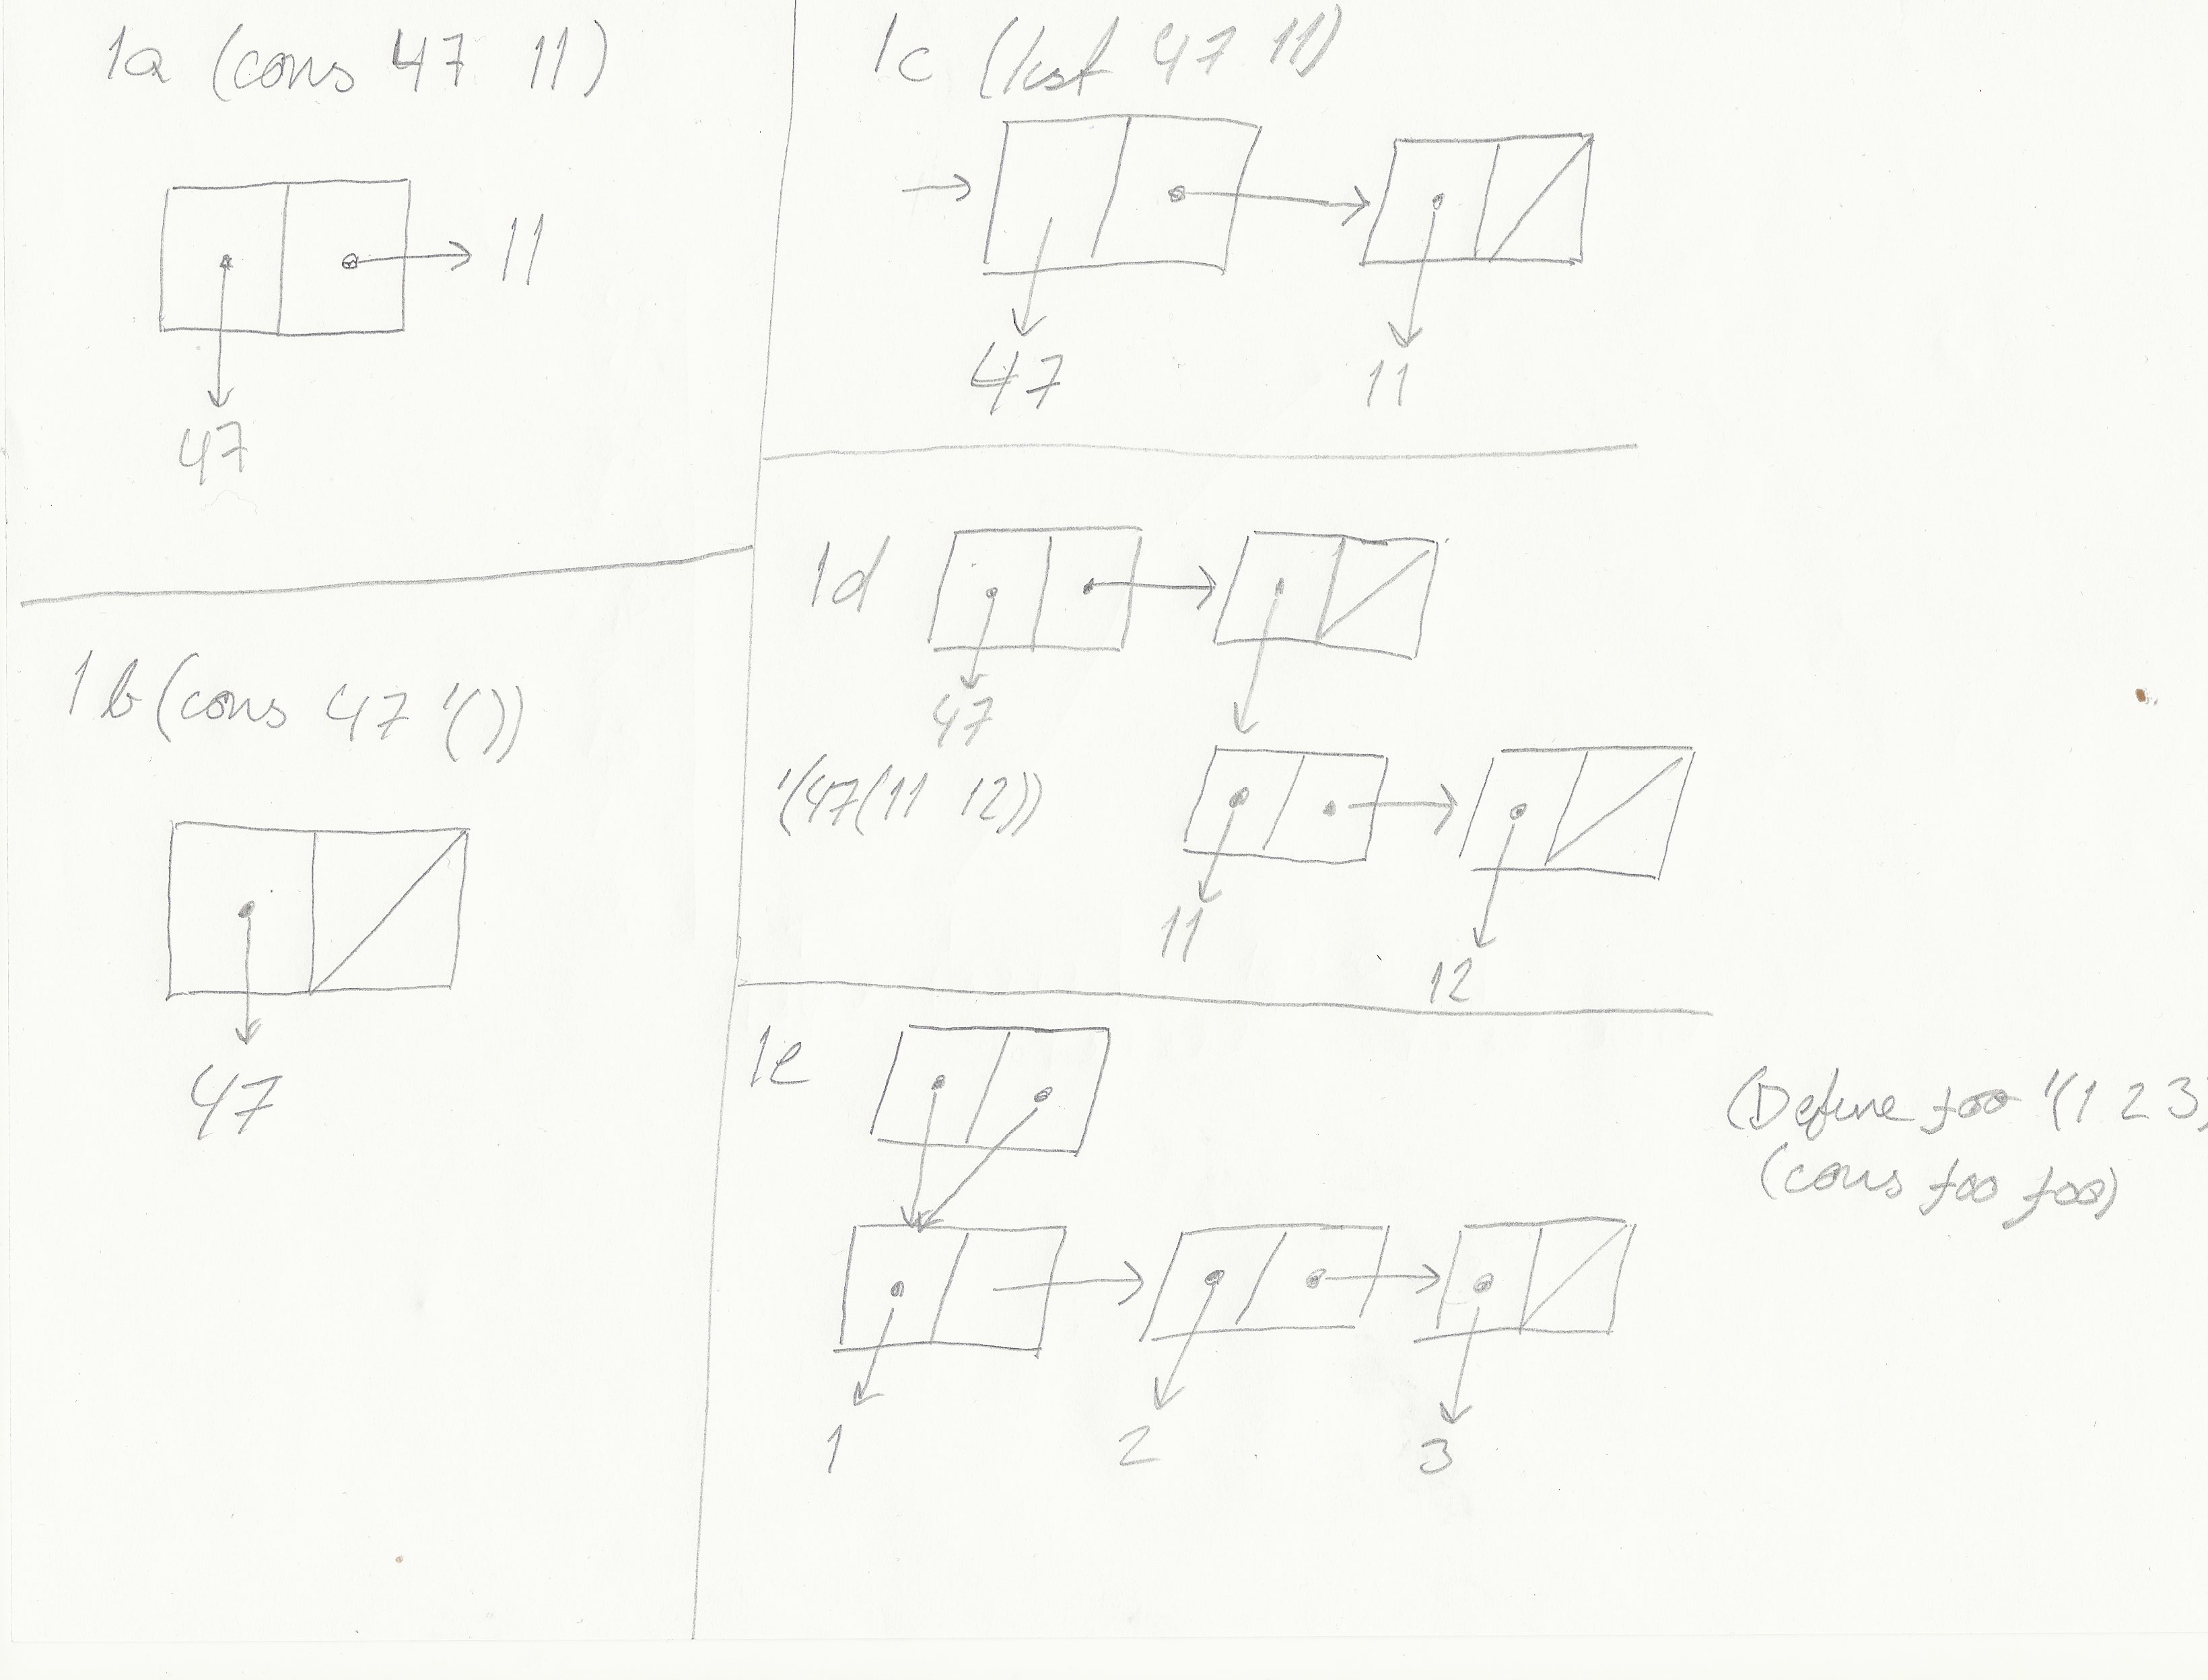 1a (cons 47 11)
11
47
1b (cons 47 '())
47
1c (list 47 11)
47
11
1d
47
'(47(11 12))
11
12
1e
(Define foo '(1 2 3)
(cons foo foo)
1
2
3